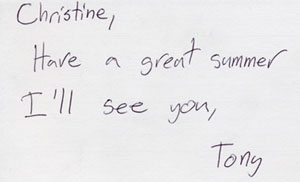 Christine,
Have a great summer
I'll see you,
Tony